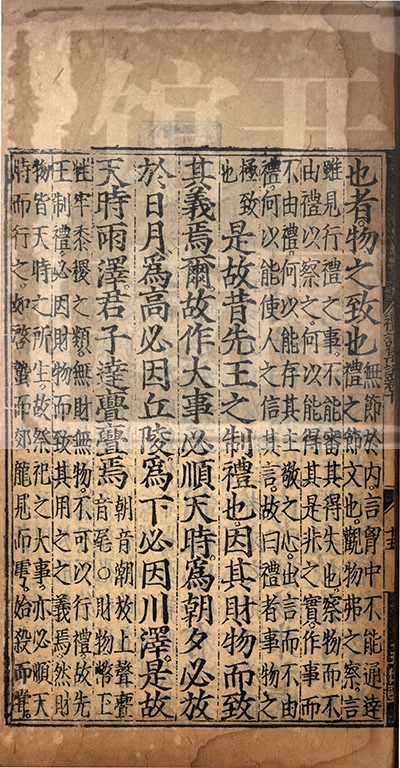 也者物之致也無節於內言胷中不能通達
禮之節文也觀物弗之察言
雖見行禮之事不能審其得失也察物而不
由禮何以察之何以能得其是非之實作事而
不由禮何以能存其主敬之心出言而不由
禮何以能使人之信其言故曰禮者事物之
極致
也
是故昔先王之制禮也因其財物而致
其義焉爾故作大事必順天時爲朝夕必放
於日月爲高必因丘陵爲下必因川澤是故
天時雨澤君子達亹亹焉朝音潮放上聲亹
音尾○財物幣玉
牲牢黍稷之類無財無物不可以行禮故先
王制禮必因財物而致其用之之義焉然財
物皆天時之所生故祭祀之大事亦必順天
時而行之如啓蟄而郊龍見而雩始殺而嘗